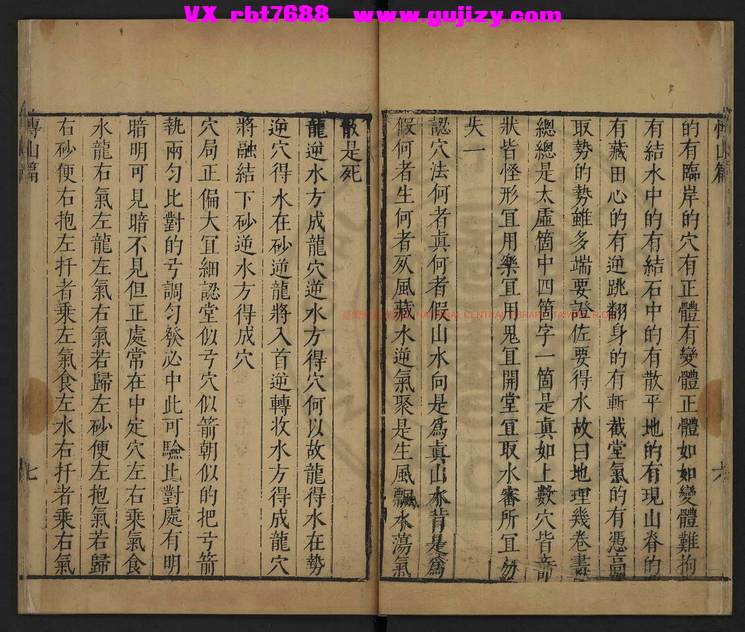 VX rbt7688 www.gujizy.com
的有臨岸的穴有正體有變體正體如如變體難拘
有結水中的有結石中的有散平地的有現山脊的
有藏田心的有逆跳翻身的有斬截堂氣的有憑高
取勢的勢雖多端要證佐要得水故曰地理幾卷書
總總是太虛箇中四箇字一箇是真如上數穴皆奇
狀皆怪形宜用樂宜用鬼宜開堂宜取水審所宜勿
失一
認穴法何者真何者假山水向是爲真山水背是爲
假何者生何者死風藏水逆氣聚是生風飄水蕩氣
散是死
龍逆水方成龍穴逆水方得穴何以故龍得水在勢
逆穴得水在砂逆龍將入首逆轉收水方得成龍穴
將融結下砂逆水方得成穴
穴局正偏大宜細認堂似弓穴似箭朝似的把弓箭
執兩勻比對的弓調勻發必中此可驗比對處有明
暗明可見暗不見但正處常在中定穴左右乘氣食
水龍右氣左龍左氣右氣若歸左砂便左抱氣若歸
右砂便右抱左扦者乘左氣食左水右扦者乘右氣
傳山篇
七